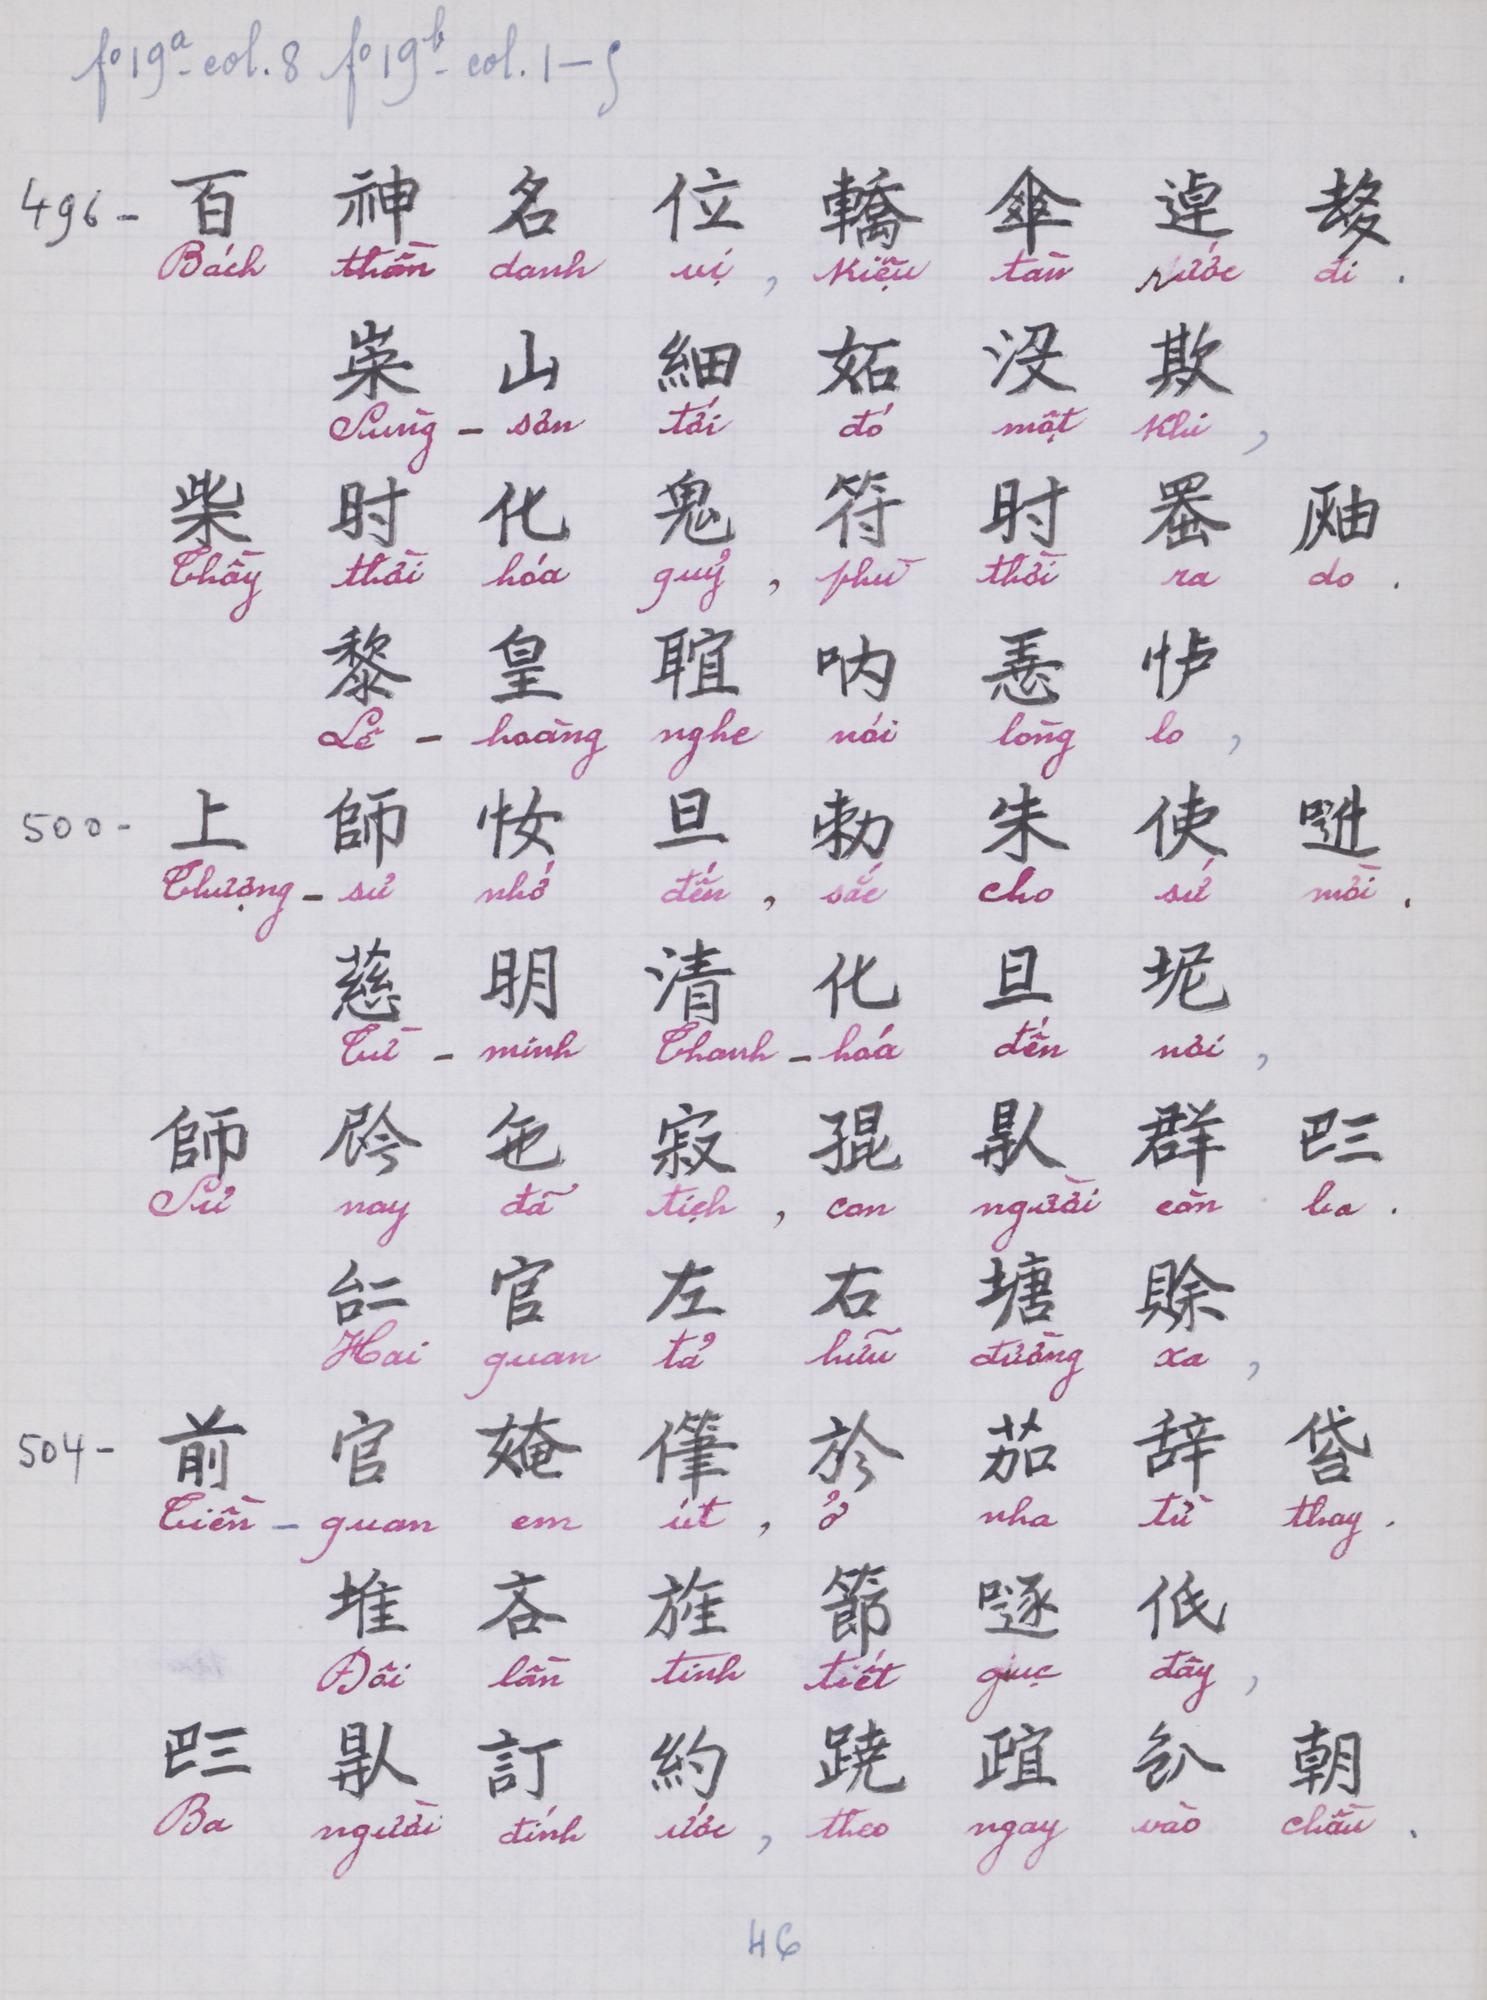 fº 19ª - col. 8 fº 19ᵇ - col. 1 – 5
496 – 百 神 名 位 轎 傘 迍 𠫾
Bách thần danh vị, kiệu tàn rước đi.
崇 山 細 妬 没 欺
Sùng – sơn tới đó một khi,
柴 时 化 鬼 符 时 𦋦 𪽏
Thầy thời hóa quỷ, phù thời ra do.
黎 皇 𦖑 呐 𢚸 㤑
Lê – hoàng nghe nói lòng lo,
500 – 上 師 𢘾 旦 勅 朱 使 𠶆
Thượng – sư nhớ đến, sắc cho sứ mời.
慈 明 清 化 旦 坭
Từ – minh Thanh – hóa đến nơi,
師 𫢩 㐌 寂 𡥵 𠊛 群 𠀧
Sư nay đã tịch, con người còn ba.
𠄩 官 左 右 塘 賖
Hai quan tả hữu đường xa,
504 – 前 官 㛪 𠎨 於 茄 辞 𠊝
Tiền – quan em út, ở nha từ thay.
堆 吝 旌 節 𠽖 低
Đôi lần tinh tiết giục đây,
𠀧 𠊛 訂 約 蹺 𣦍 𠓨 朝
Ba người đính ước, theo ngay vào chầu.
46